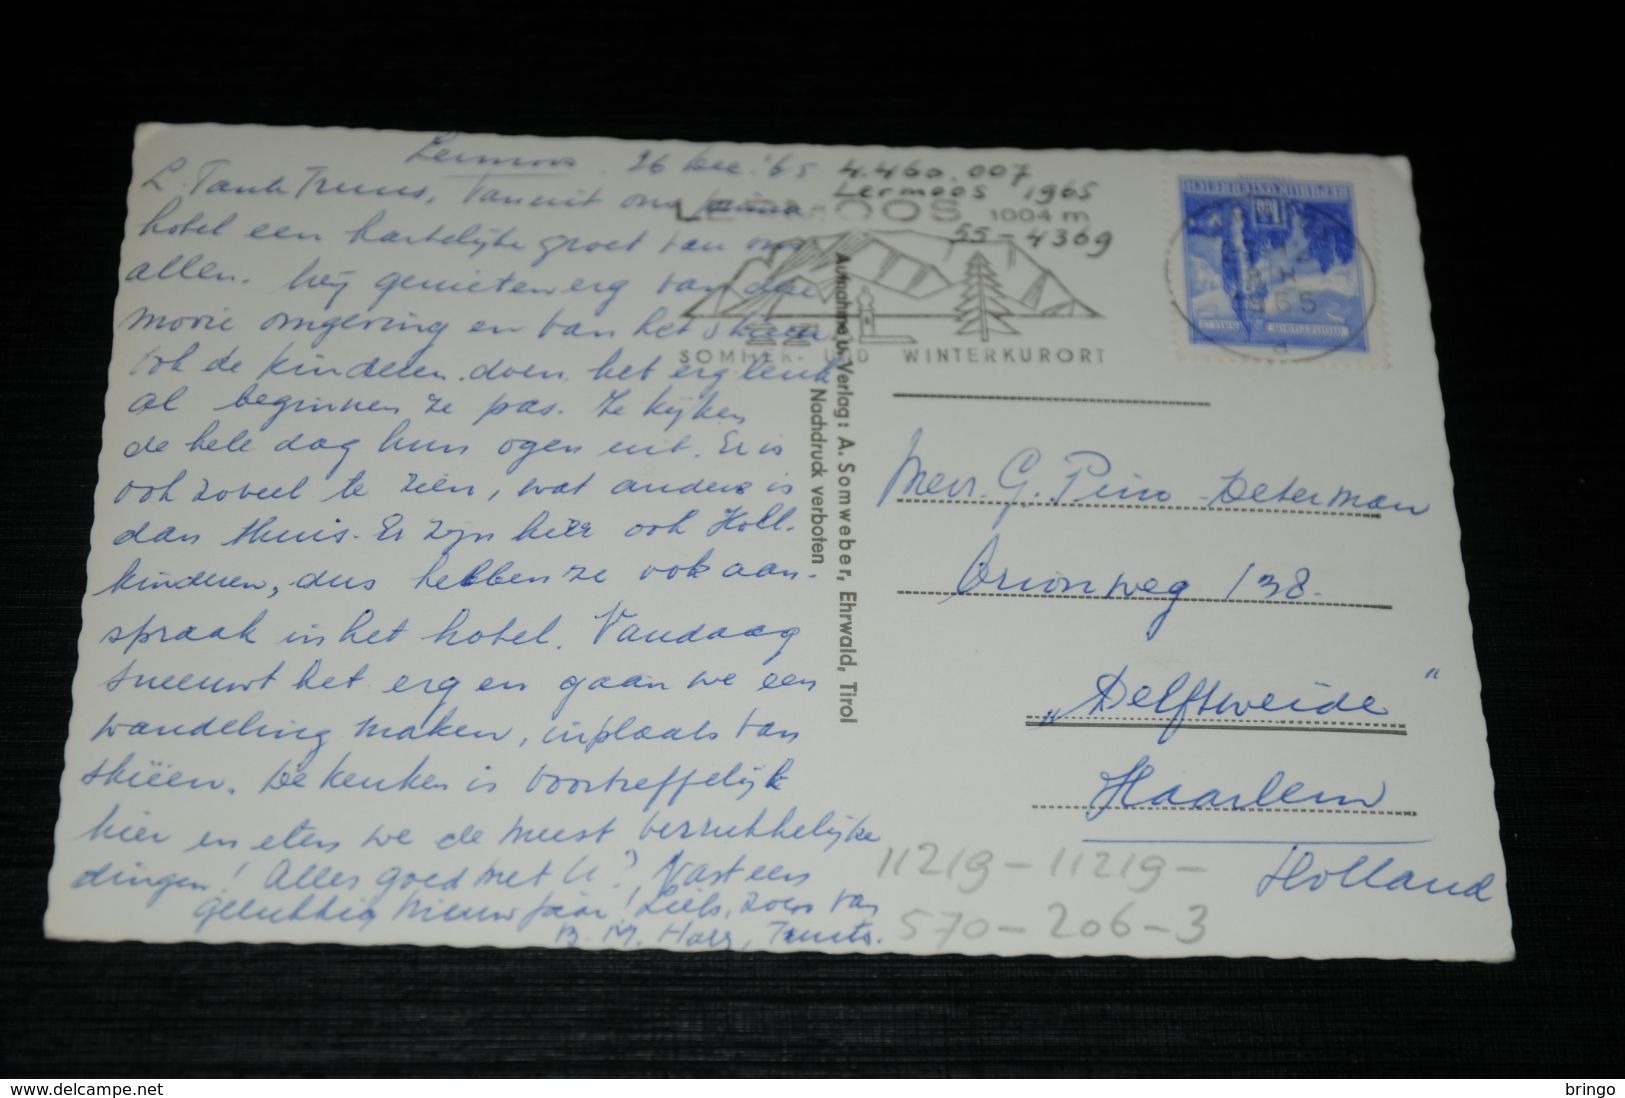 Lermoos. 26 dec. '65
L. Tante Truus, Vanuit ons
hotel een hartelijke groet van ons
allen. Wij genieten erg van de
mooie omgeving en van het skiën
ook de kinderen doen het erg leuk
al beginnen ze pas. Ze kijken
de hele dag hun ogen uit. Er is
ook zoveel te zien, wat anders is
dan thuis. Er zijn hier ook Holl.
kinderen, dus hebben ze ook aan-
spraak in het hotel. Vandaag
sneeuwt het erg en gaan we een
wandeling maken, inplaats van
skiëen. De keuken is voortreffelijk
hier en eten we de meest verrukkelijke
dingen! Alles goed met U? Vast een
gelukkig Nieuwjaar! Liefs, zoen van
B. M. Hans, Truits.
4.460.007
Lermoos 1965
55-4369
LERMOOS 1004 m
SOMMER- UND WINTERKURORT
REPUBLIK ÖSTERREICH
1965
a
Aufnahme u. Verlag: A. Somweber, Ehrwald, Tirol
Nachdruck verboten
Mevr. G. Pino-Determan
Orionweg 138.
„Delftweide"
Haarlem
Holland
11219-11219-
570-206-3
delcampe.net
bringo